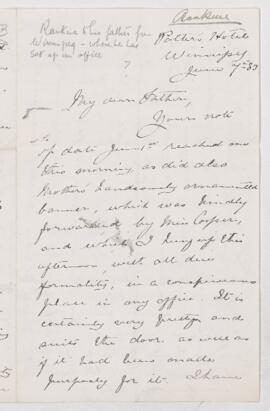 Rankin
Rankin to his father from
Winnipeg - where he has
set up an office
?
Potter's Hotel
Winnipeg
June 7th 83
My dear Father,
Yours note
of date June 1st reached me
this morning, as did also
Mother's handsomely ornamented
banner, which was kindly
forwarded by Miss Cooper,
and which I hung up this
afternoon, with all due
formality, in a conspicuous
place in my office. It is
certainly very pretty and
suits the door as well as
if it had been made
purposely for it. I have